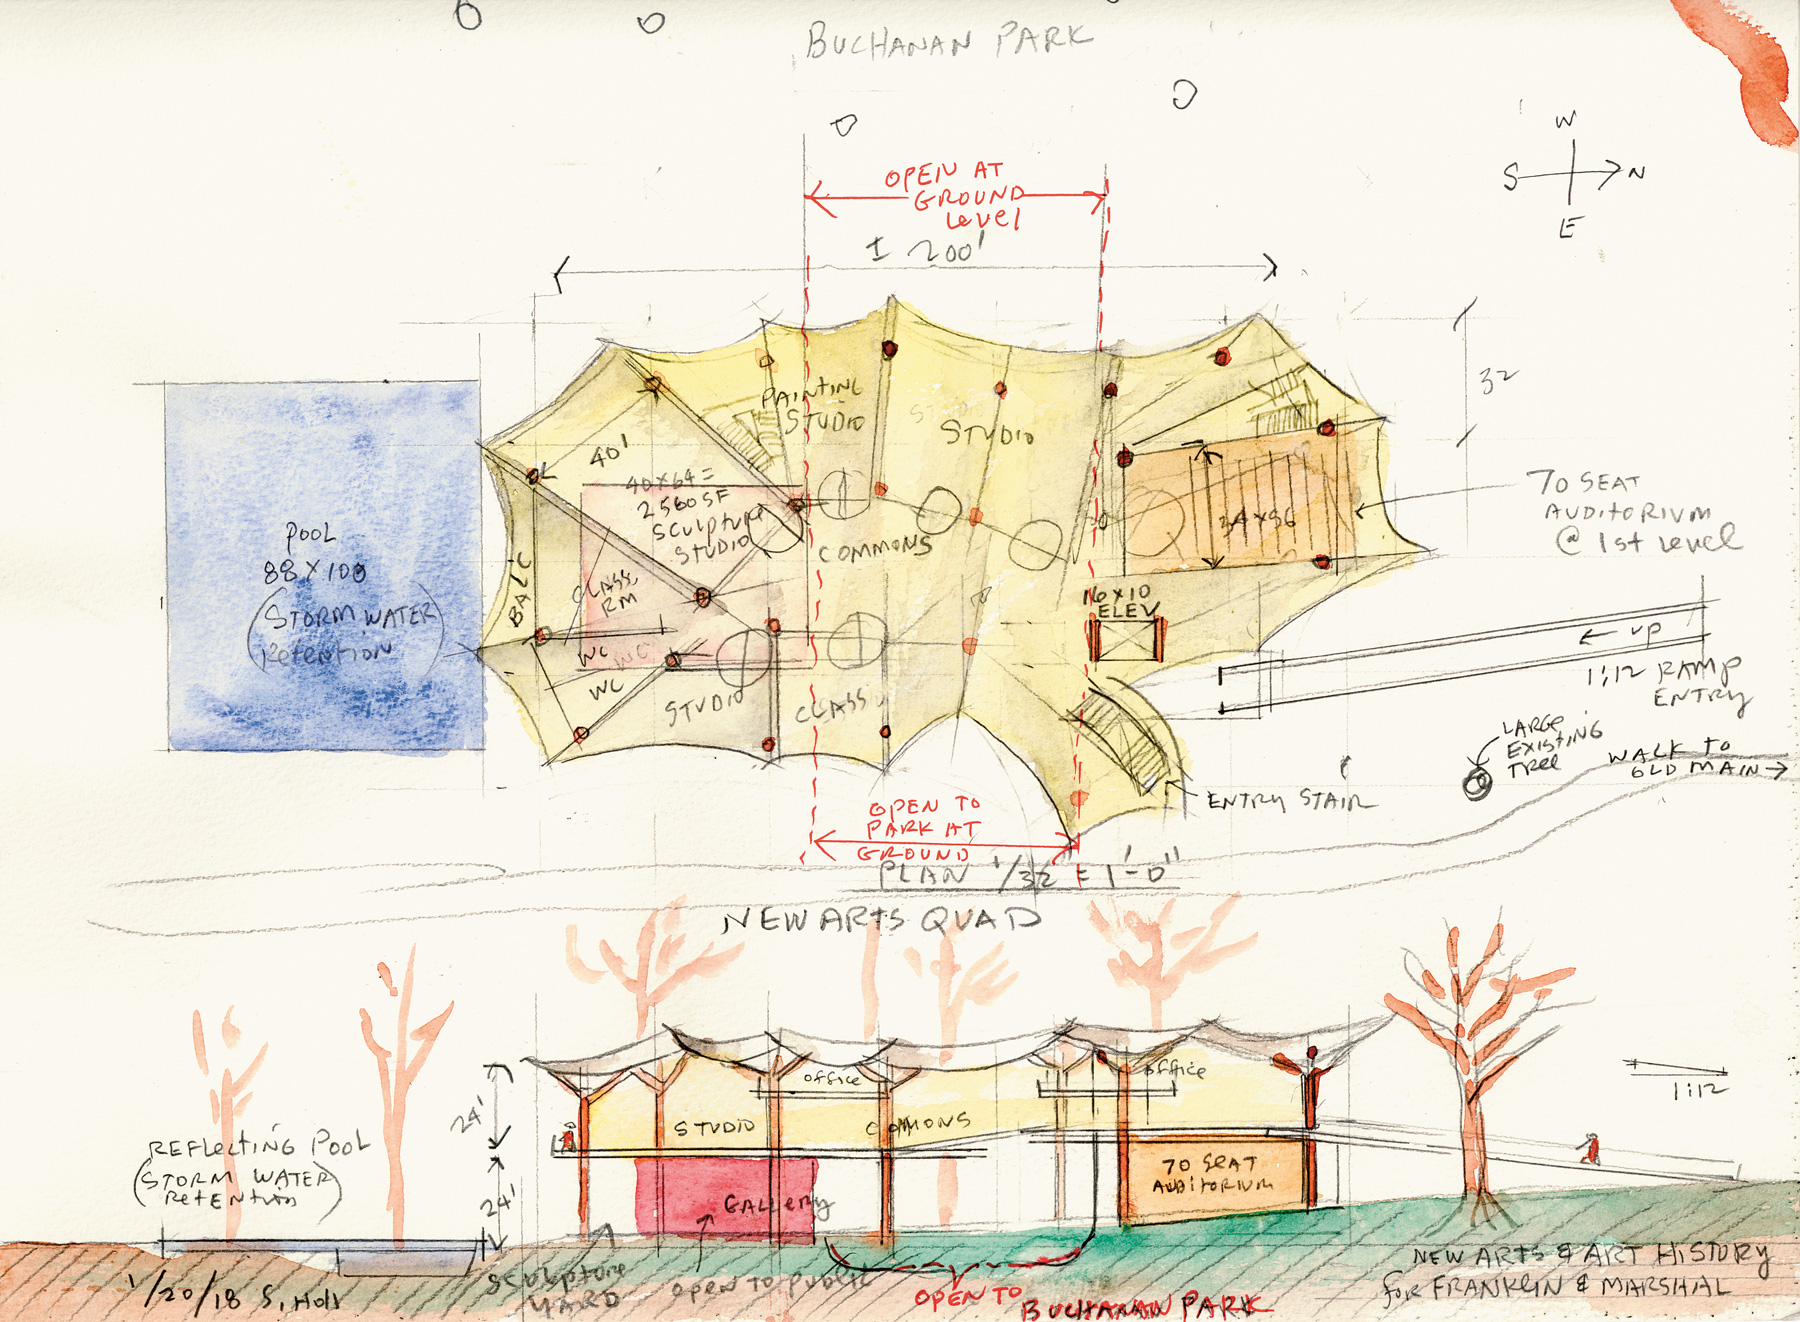 BUCHANAN PARK
W
S
N
E
OPEN AT
GROUND
LEVEL
± 200'
32
PAINTING
STUDIO
STUDIO
40'
40×64=
2560 SF
SCULPTURE
STUDIO
COMMONS
CLASS
RM
BALC
WC
WC
WC
STUDIO
CLASS
34×56
16×10
ELEV
70 SEAT
AUDITORIUM
@ 1st LEVEL
POOL
88×100
(STORM WATER
RETENTION)
UP
1:12 RAMP
ENTRY
LARGE
EXISTING
TREE
WALK TO
OLD MAIN
ENTRY STAIR
OPEN TO
PARK AT
GROUND
PLAN 1/32" = 1'-0"
NEW ARTS QUAD
24'
24'
OFFICE
OFFICE
STUDIO
COMMONS
1:12
REFLECTING POOL
(STORM WATER
RETENTION)
GALLERY
70 SEAT
AUDITORIUM
SCULPTURE
YARD
OPEN TO PUBLIC
OPEN TO
BUCHANAN PARK
1/20/18 S. Holl
NEW ARTS & ART HISTORY
for FRANKLIN & MARSHAL